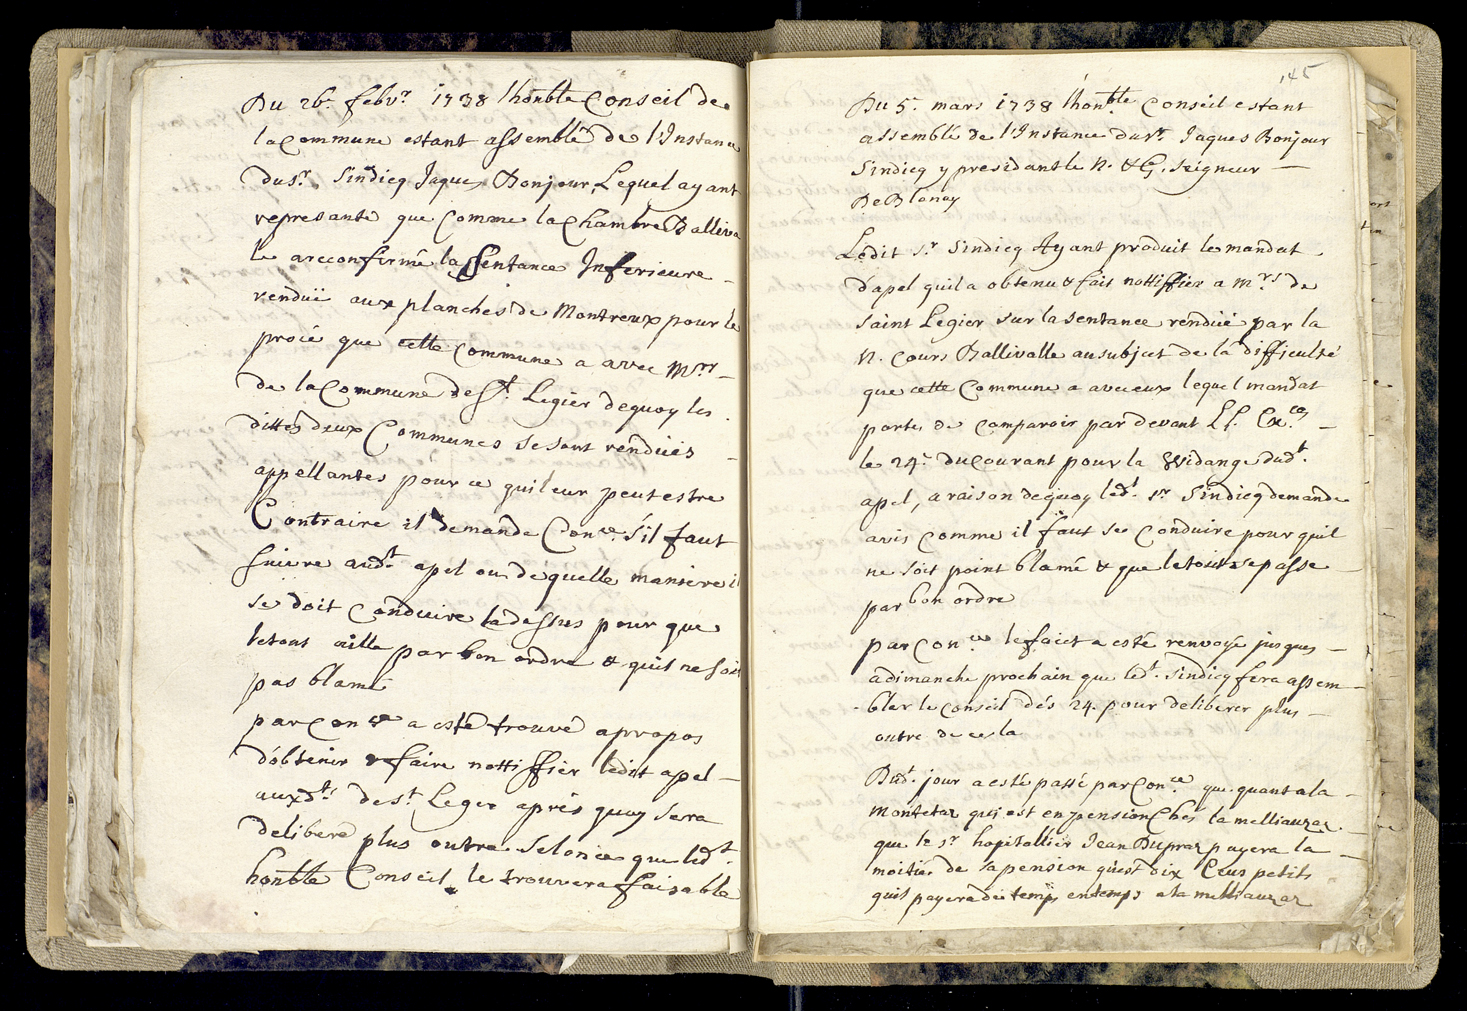 Du 26.e febv.r 1738 l'honble Conseil de
la Commune estant assemblé de l'Instance
du s.r Sindicq Jaques Bonjour, Lequel ayant
represanté que comme la Chambre Balliva
le a reconfirmé la Sentance Inferieure
rendüe aux planches de Montreux pour le
procé que cette Commune a avec Mrs
de la Commune de St. Legier dequoy les
dittes deux Communes se sont rendües
appellantes pour ce quil leur peut estre
Contraire il demande Con.ce s'il faut
suivre aud.t apel ou de quelle maniere il
se doit conduire la dessus pour que
le tout aille par bon ordre & quil ne soit
pas blamé
par Con.ce a esté trouvé a propos
d'obtenir & faire nottiffier ledit apel
auxd.ts de St. Leger aprés quoy sera
deliberé plus outre selon ce que led.t
honble Conseil le trouvera faisable
145
Du 5.e mars 1738 l'honble Conseil estant
assemblé de l'Instance du sr. Jaques Bonjour
Sindicq y presidant le N. & G. Seigneur
De Blonay
Ledit sr. Sindicq Ayant produit le mandat
d'apel quil a obtenu & fait nottiffier a Mrs de
Saint Legier sur la sentance rendüe par la
N. Cours Ballivalle au subject de la difficulté
que cette Commune a avec eux lequel mandat
porte, de comparoir par devant LL. Ex.ces
le 24.e du Courant pour la Widange dud.t
apel, a raison dequoy led.t sr. Sindicq demande
avis comme il faut se conduire pour quil
ne soit point blamé & que le tout se passe
par bon ordre
par Con.ce le faict a esté renvoyé jusques
a dimanche prochain que led.t Sindicq fera assem
bler le Conseil dés 24. pour deliberer plus
outre de cela
Dud.t jour a esté passé par Con.ce que quant a la
Montetaz qui est en pension Chés la melliauzaz
que le sr. hopitallier Jean Dupraz payera la
moitié de sa pension quest dix Ecus petits
quil payera de temps en temps a la melliauzaz